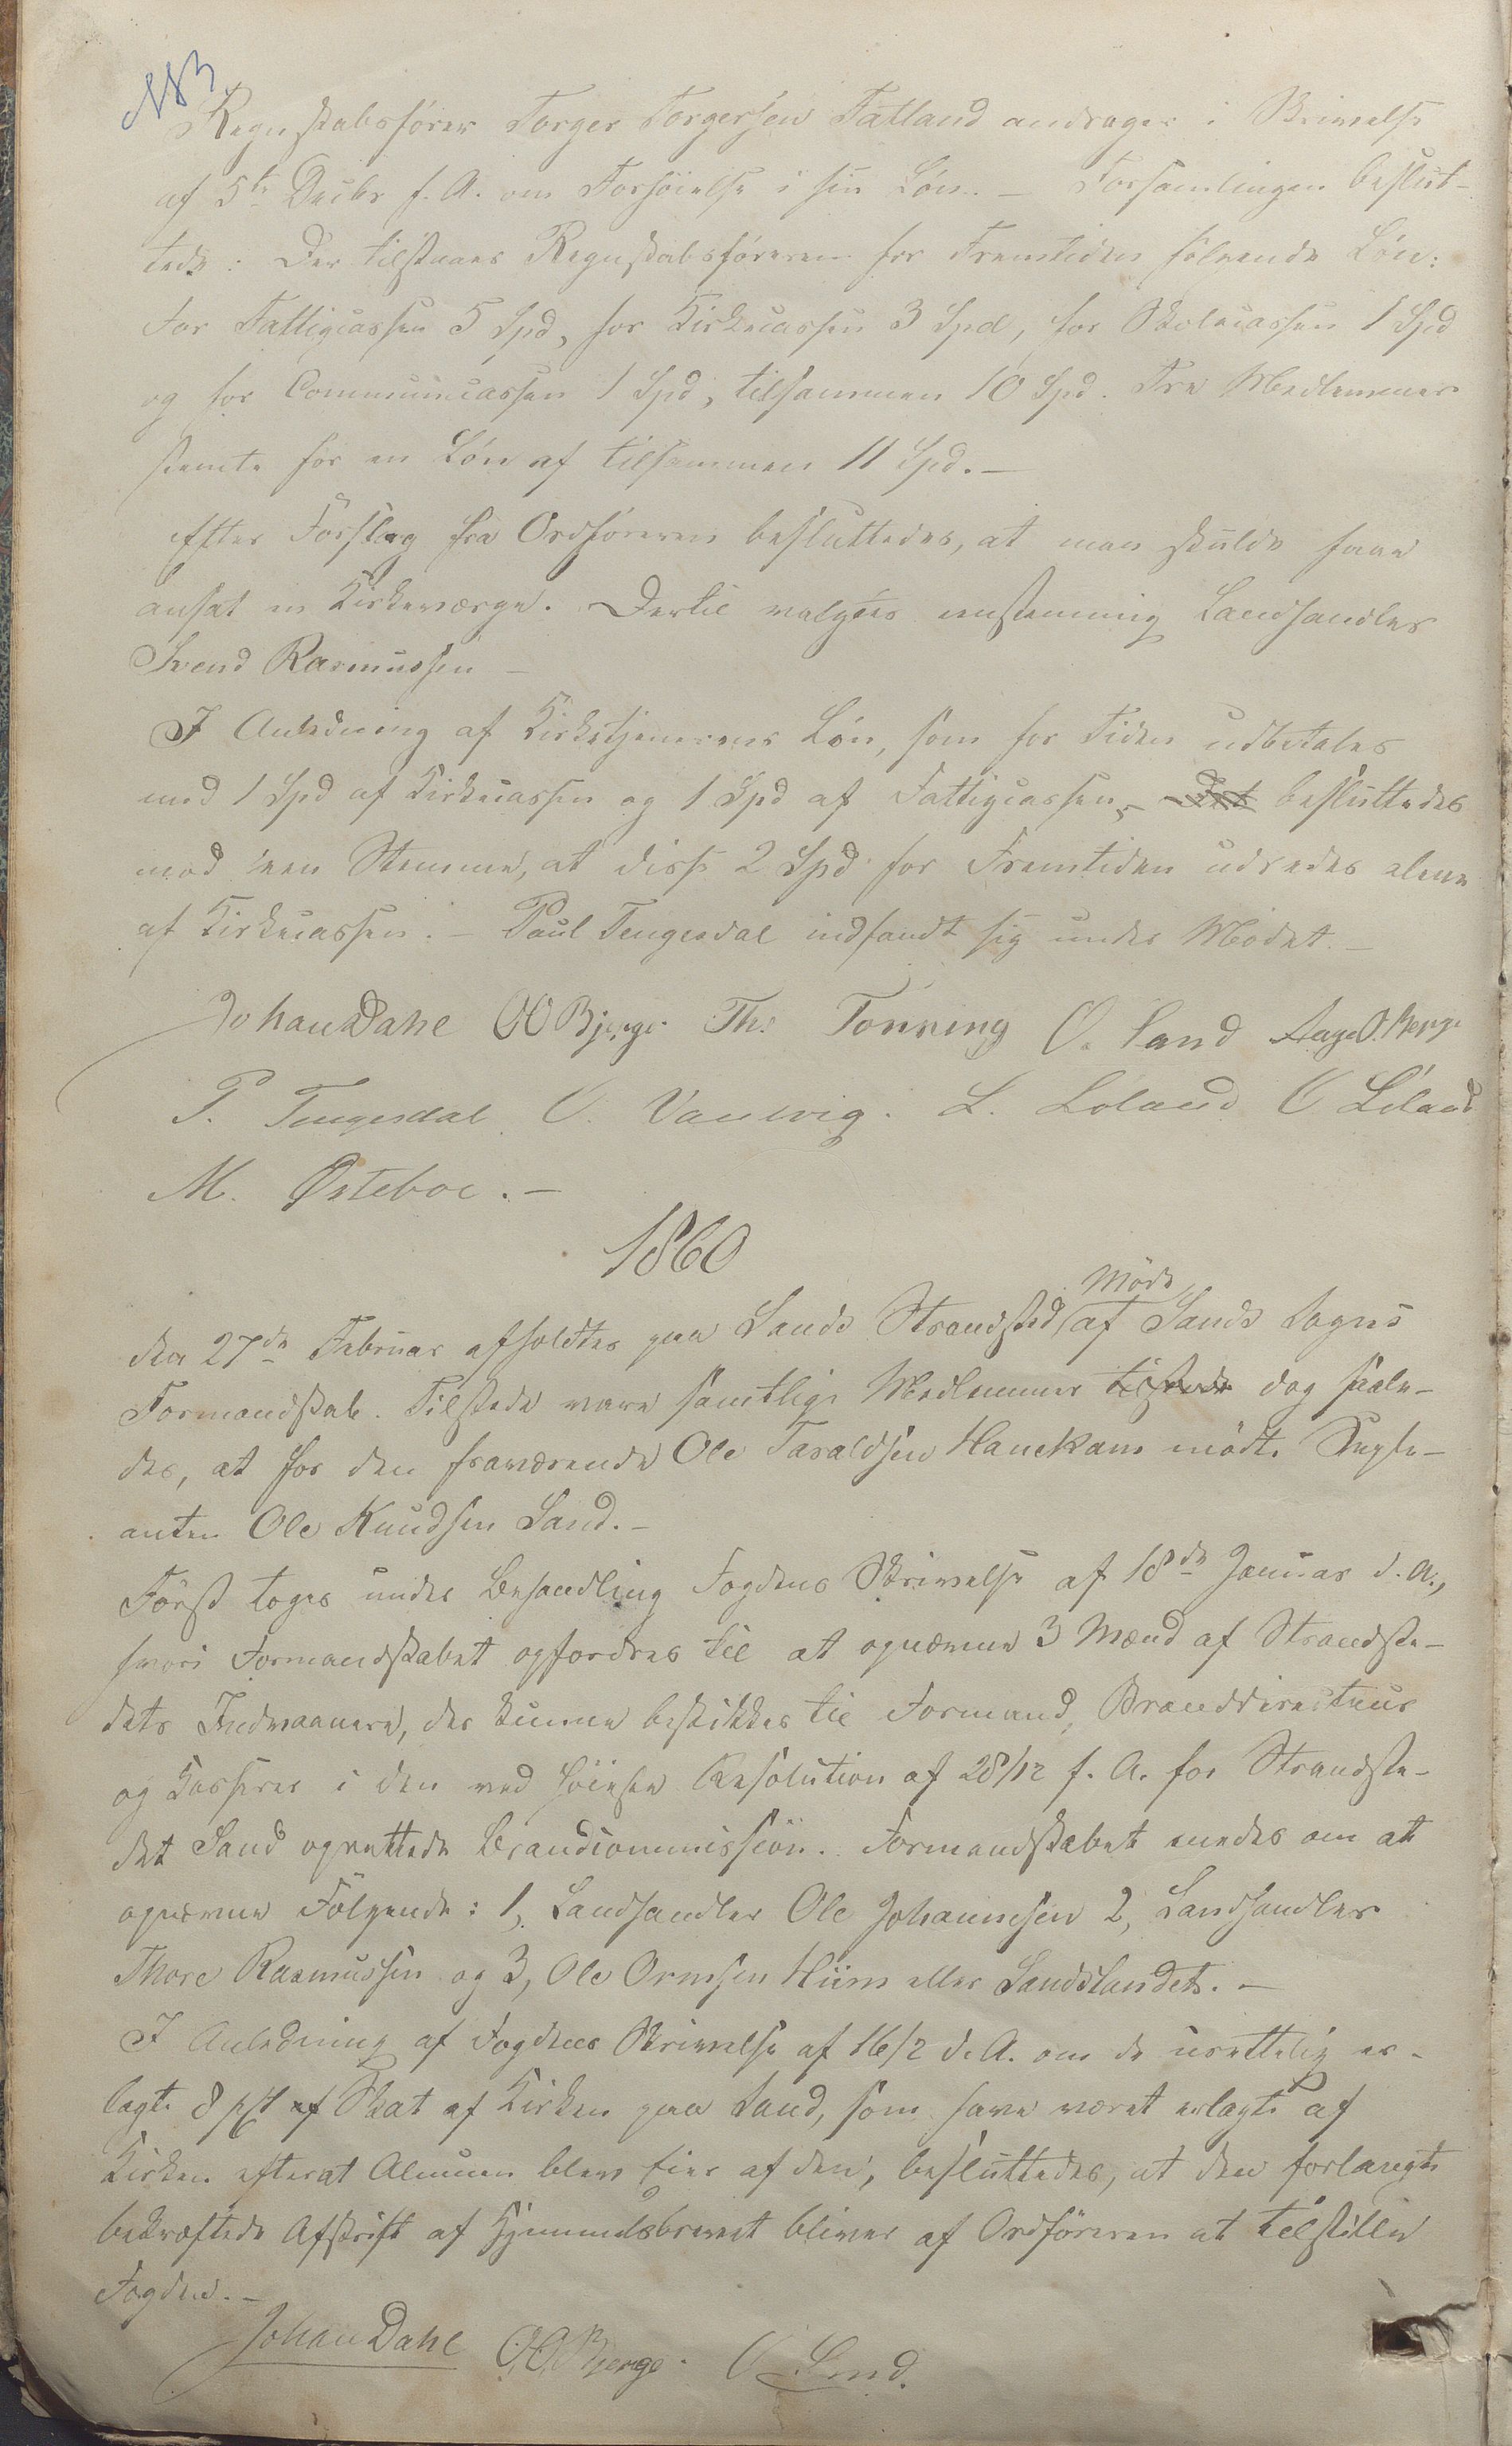 NB.
Regnskabsfører Torger Torgersen Tatland andrager i Skrivelse
af 5te Decbr f. A. om Forhöielse i sin Lön. — Forsamlingen beslut-
tede: Der tilstaaes Regnskabsföreren for Fremtiden fölgende Lön:
For Fattigcassen 5 Spd, for Kirkecassen 3 Spd, for Skolecassen 1 Spd
og for Communecassen 1 Spd, tilsammen 10 Spd. Tre Medlemmer
stemte for en Lön af tilsammen 11 Spd. —
Efter Forslag fra Ordföreren besluttedes, at man skulde faae
ansat en Kirkeværge. Dertil valgtes enstemmig Landhandler
Svend Rasmussen —
I Anledning af Kirketjenerens Lön, som for Tiden udbetales
med 1 Spd af Kirkecassen og 1 Spd af Fattigcassen, – Det besluttedes
mod een Stemme, at disse 2 Spd for Fremtiden udredes alene
af Kirkecassen. – Paul Tengesdal indfandt sig under Mödet. —
Johan Dahl OO Bjerge. Th. Tonning O. Sand Aage O. Berge
P. Tengesdal O. Vanvig. L. Löland O Löland
M. Østeboe. —
1860
den 27de Februar afholdtes paa Sands Strandsted Möde af Sands Sogns
Formandskab. Tilstede vare samtlige Medlemmer tilstede dog saale-
des, at for den fraværende Ole Taraldsen Hauekam mödte Supple-
anten Ole Knudsen Sand. —
Först toges under Behandling Fogdens Skrivelse af 18de Januar d. A.,
hvori Formandskabet opfordres til at opnævne 3 Mænd af Strandste-
dets Indvaanere, der kunne beskikkes til Formand, Branddirecteur
og Kasserer i den ved höieste Resolution af 28/12 f. A. for Strandste-
det Sand oprettede Brandcommission. Formandskabet enedes om at
opnævne Fölgende: 1, Landhandler Ole Johannesen 2, Landhandler
Thore Rasmussen og 3, Ole Ormsen Hiim eller Sandslandet. —
I Anledning af Fogdens Skrivelse af 16/2 d. A. om de urettelig er-
lagte 8 pCt af Skat af Kirken paa Sand, som have været erlagte af
Kirken efterat Almuen blev Eier af den, besluttedes, at den forlangte
bekræftede Afskrift af Hjemmelsbrevet bliver af Ordföreren at tilstille
Fogden. —
Johan Dahl O.O. Bjerge. O Sand.